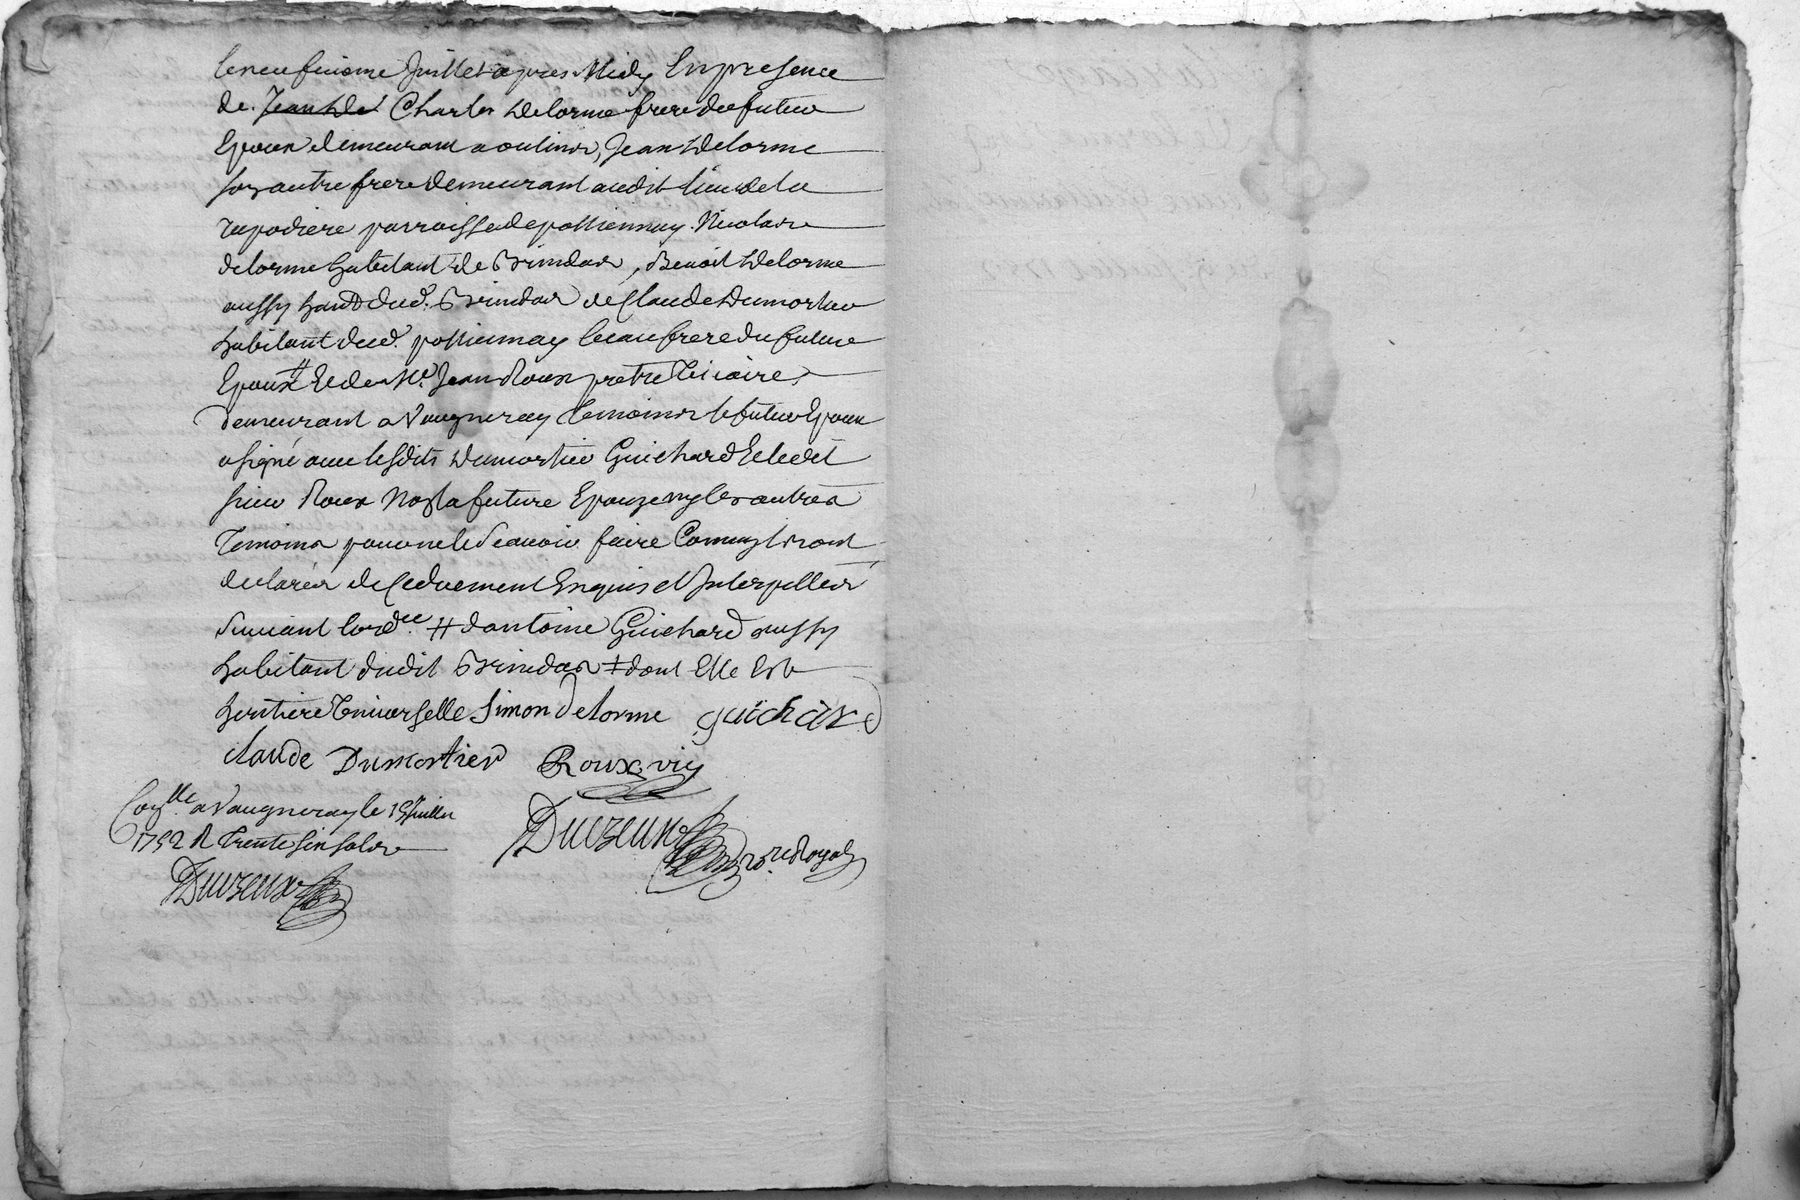 le neufuieme Juillet apres Midy En presence
de Jean Del Charles Delorme frere du futeur
Epoux demeurant a oulinis, Jean Delorme
son autre frere demeurant audit lieu de la
rapodiere parroisse de polliennay. Nicolas
delorme habitant de Brindas, Benoit Delorme
aussy habt dud. Brindas de Claude Dumortier
habitant dud. polliennay beaufrere du future
Epoux # Et de Me. Jean Roux pretre Viccaire
demeurant a Vaugneray temoins le futeur Epoux
a signé avec lesdits Dumortier Guichard Et ledit
sieur Roux Non la future Epouze ny les autres
temoins pour ne le scavoir faire Comm'ils ont
declarés de ce duement Enquis et Interpellés
suivant lord.ce # d'antoine Guichard aussy
habitant dudit Brindas ‡ dont Elle Est
heritiere Universelle Simon Delorme guichard
claude Dumortier Roux vic
Con.lle a Vaugneray le 19 Juillet
1752 R trente six sols
Duvzeux
Duvzeux no.re Royal